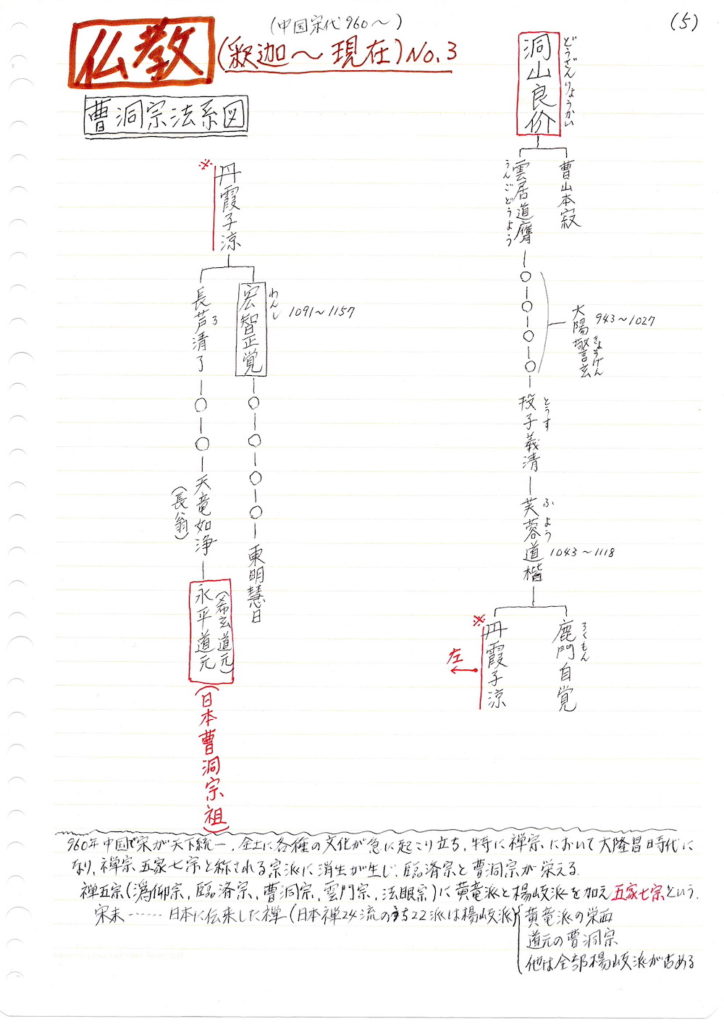 (中国宋代960〜)
(5)
仏教(釈迦〜現在)No.3
曹洞宗法系図
洞山良价
どうざんりょうかい
曹山本寂
雲居道膺
うんごどうよう
大陽警玄
きょうげん
943〜1027
投子義清
とうす
芙蓉道楷
ふよう
1043〜1118
鹿門自覚
ろくもん
※
丹霞子涼
左
※
丹霞子涼
宏智正覚
わんし
1091〜1157
東明慧日
長芦清了
ろ
天竜如浄
(長翁)
永平道元
(希玄道元)
(日本曹洞宗祖)
960年中国で宋が天下統一、全土に各種の文化が急に起こり立ち、特に禅宗において大隆昌時代に
なり、禅宗五家七宗と称される宗派に消生が生じ、臨済宗と曹洞宗が栄える.
禅五宗(潙仰宗、臨済宗、曹洞宗、雲門宗、法眼宗)に黄竜派と楊岐派を加え五家七宗という.
宋末……日本に伝来した禅(日本禅24流のうち22派は楊岐派)
黄竜派の栄西
道元の曹洞宗
他は全部楊岐派が占める